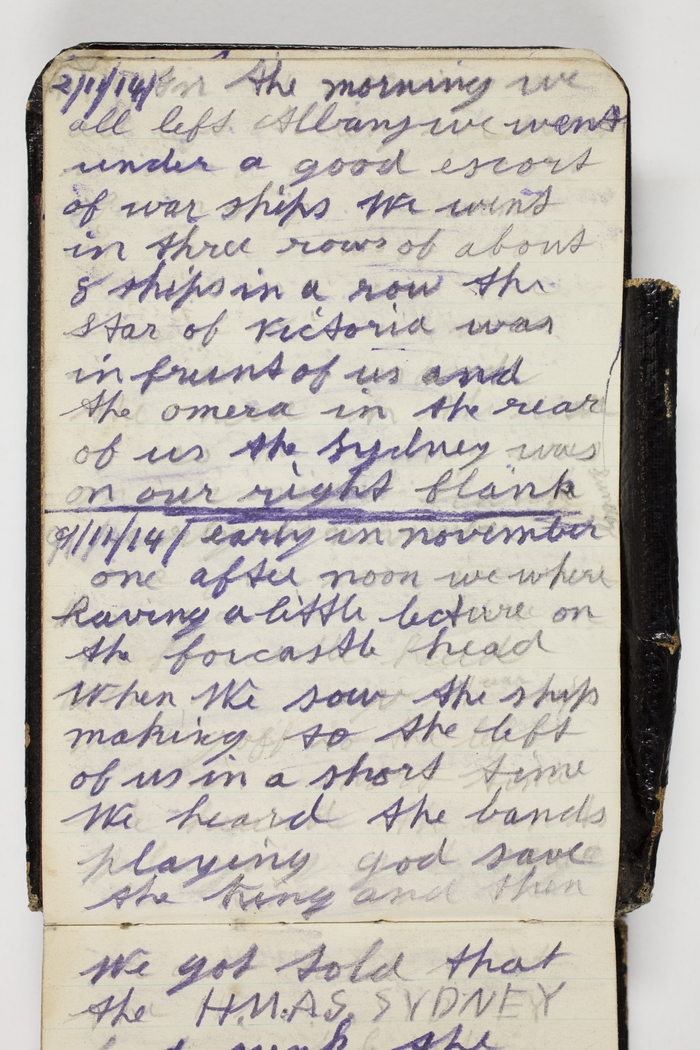 2/11/14/ In the morning we
all left Albany we went
under a good escort
of war ships We went
in three rows of about
8 ships in a row the
star of victoria was
in frunt of us and
the omera in the rear
of us the Sydney was
on our right flank
9/11/14/ early in november
one after noon we where
having a little lecture on
the forcastle head
When We saw the ships
making to the left
of us in a short time
We heard the bands
playing god save
the king and then
We got told that
the H.M.A.S. SYDNEY
had sunk the